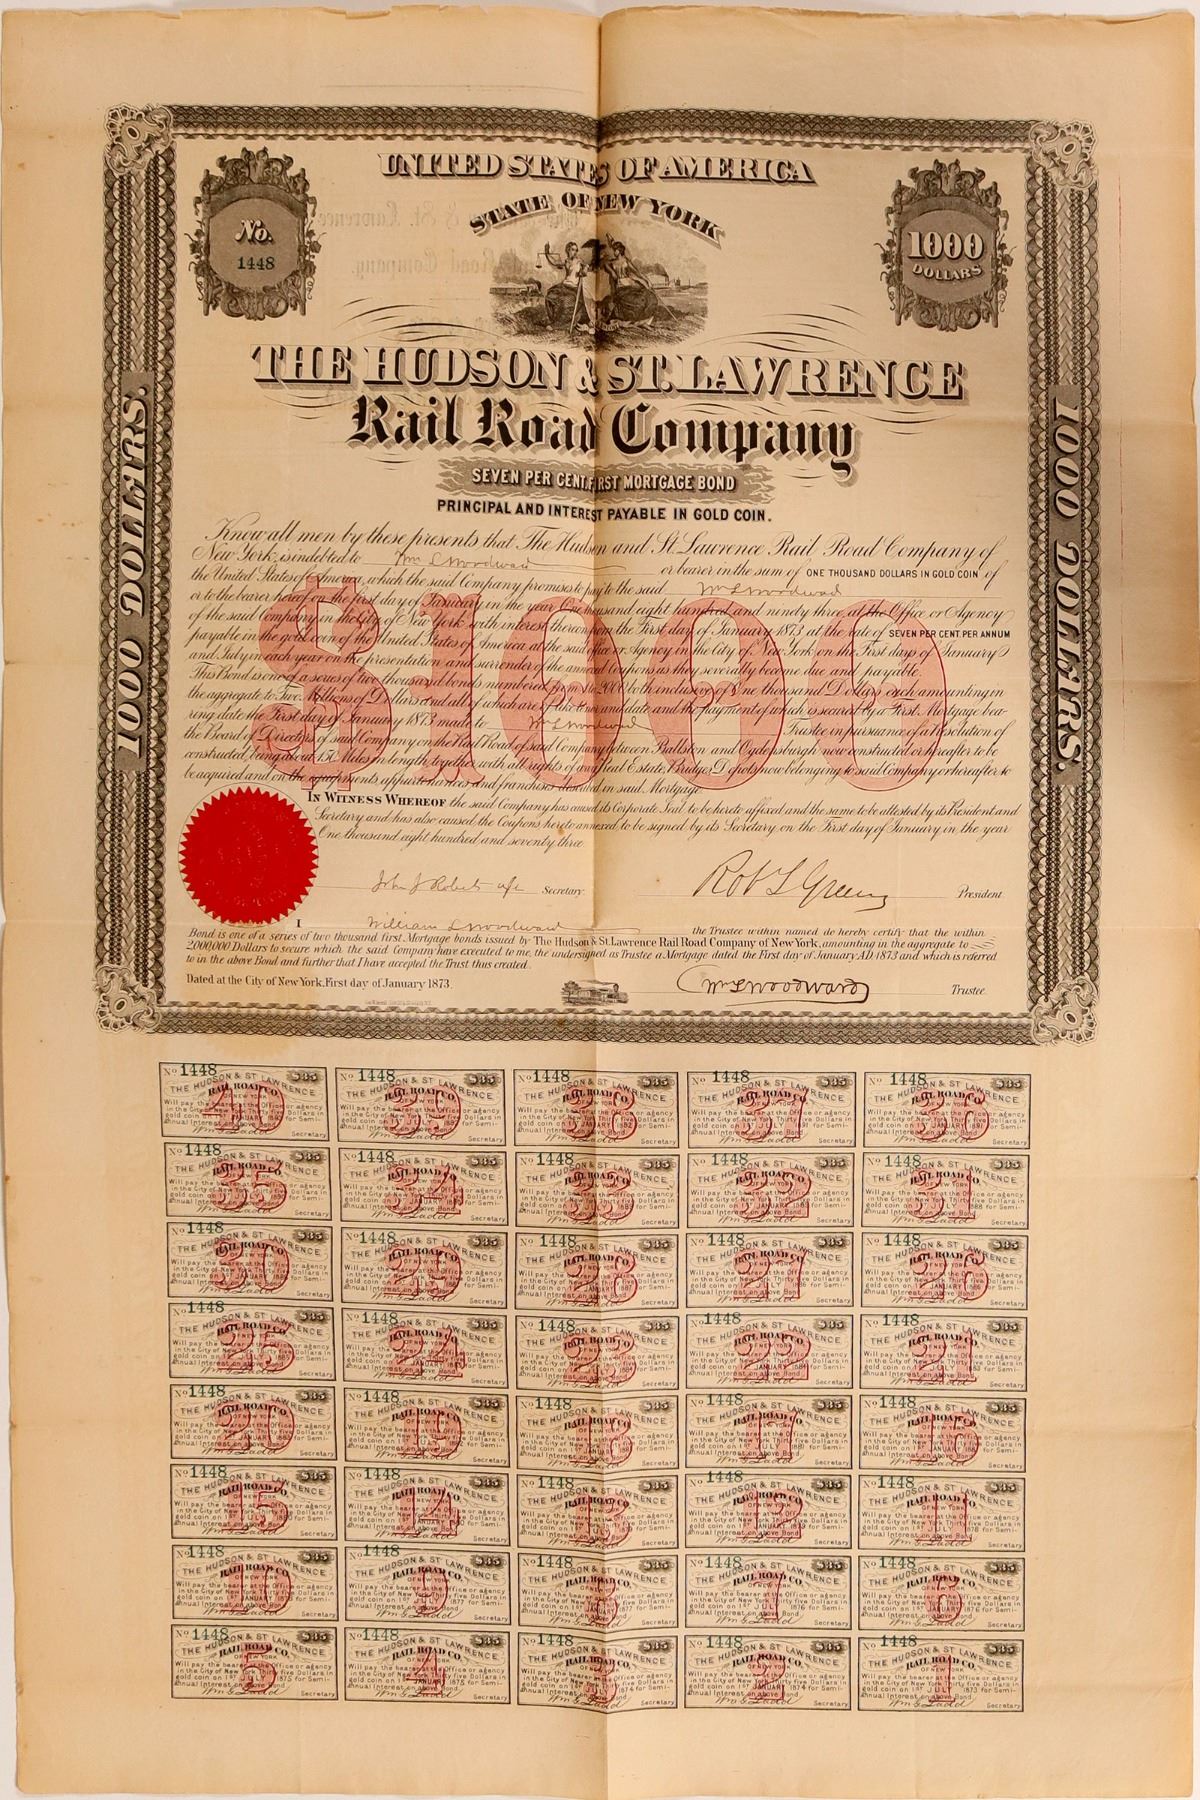 UNITED STATES OF AMERICA
STATE OF NEW YORK
No.
1448
1000
DOLLARS
THE HUDSON & ST. LAWRENCE
Rail Road Company
SEVEN PER CENT. FIRST MORTGAGE BOND
PRINCIPAL AND INTEREST PAYABLE IN GOLD COIN.
1000 DOLLARS.
1000 DOLLARS.
$1000
Know all men by these presents that The Hudson and St. Lawrence Rail Road Company of
New York, is indebted to Wm L Woodward or bearer in the sum of ONE THOUSAND DOLLARS IN GOLD COIN of
the United States of America, which the said Company promises to pay to the said Wm L Woodward
or to the bearer hereof on the first day of January in the year One thousand eight hundred and ninety three, at the Office or Agency
of the said company in the City of New York with interest thereon from the First day of January 1873 at the rate of SEVEN PER CENT. PER ANNUM
payable in the gold coin of the United States of America at the said office or Agency in the City of New York on the First days of January
and July in each year on the presentation and surrender of the annexed Coupons as they severally become due and payable.
This Bond is one of a series of two thousand bonds numbered from 1 to 2000 both inclusive of One thousand Dollars each amounting in
the aggregate to Two Millions of Dollars and all of which are of like tenor and date and the payment of which is secured by a First Mortgage bea-
ring date the First day of January 1873 made to Wm L Woodward Trustee in pursuance of a Resolution of
the Board of Directors of said Company on the Rail Road of said Company between Ballston and Ogdensburgh now constructed or hereafter to be
constructed, being about 150 Miles in length, together with all rights of any real Estate, Bridges, Depots now belonging to said Company or hereafter to
be acquired and on the equipments appurtenances and franchises described in said Mortgage.
IN WITNESS WHEREOF the said Company has caused its Corporate Seal to be hereto affixed and the same to be attested by its President and
Secretary and has also caused the Coupons hereto annexed to be signed by its Secretary on the First day of January in the year
One thousand eight hundred and seventy three
John J Roberts Secretary. Rob L Green President
I William L Woodward the Trustee within named do hereby certify that the within
Bond is one of a series of two thousand first Mortgage bonds issued by The Hudson & St. Lawrence Rail Road Company of New York, amounting in the aggregate to
2,000,000 Dollars to secure which the said Company have executed to me, the undersigned as Trustee a Mortgage dated the First day of January A.D. 1873 and which is referred
to in the above Bond and further that I have accepted the Trust thus created.
Dated at the City of New York, First day of January 1873.
Wm L Woodward Trustee.
No 1448 $35
THE HUDSON & ST LAWRENCE
RAIL ROAD CO.
OF NEW YORK
Will pay the bearer at the Office or agency
in the City of New York Thirty five Dollars in
gold coin on 1st for Semi-
Annual Interest on above Bond
Wm G Ladd Secretary
40 39 38 37 36
35 34 33 32 31
30 29 28 27 26
25 24 23 22 21
20 19 18 17 16
15 14 13 12 11
10 9 8 7 6
5 4 3 2 1